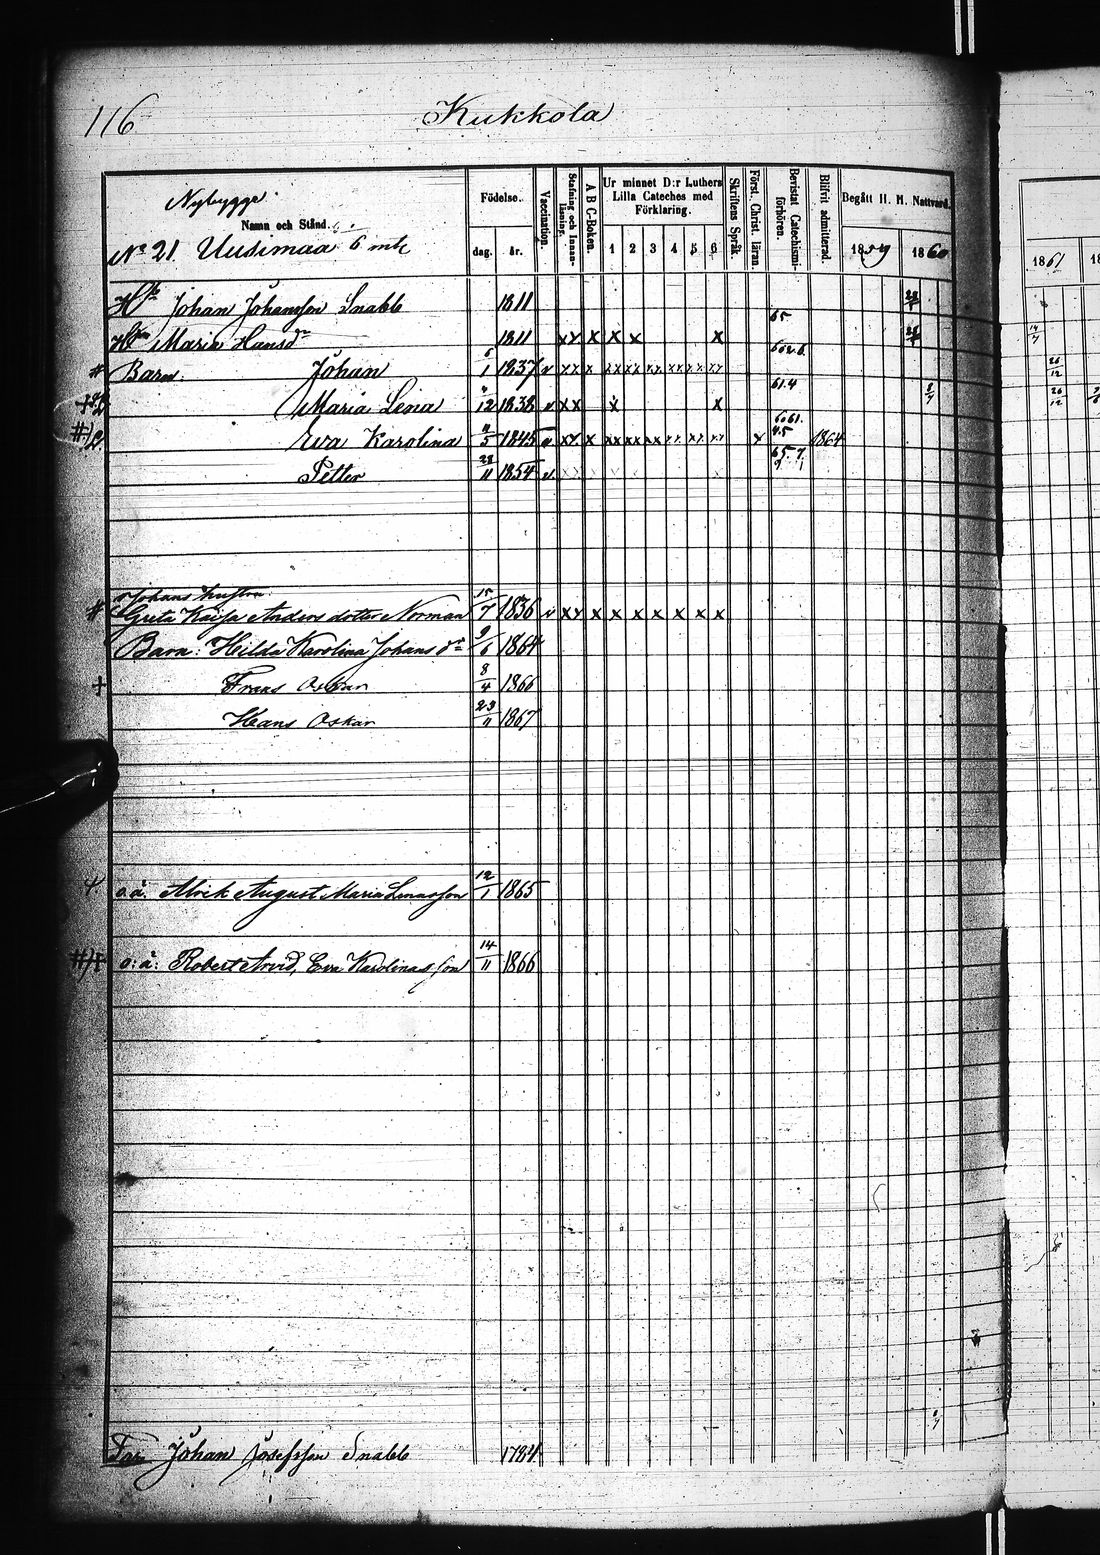 116 Kukkola
Nybygge
Namn och Stånd.
No 21 Uusimaa 6 mtl
Födelse. dag. år.
Vaccination.
Stafning och Innan-läsning.
A B C-Boken.
Ur minnet D:r Luthers Lilla Cateches med Förklaring. 1 2 3 4 5 6
Skriftens Språk.
Först. Christ. läran.
Bevistat Catechismi-förhören.
Blifvit admitterad.
Begått H. H. Nattvard.
1859 1860 1861 18
Johan Johansson Snabb 1811
65
Maria Hansdr 1811 x x x x x x
# Barn: Johan 6/1 1837 v x x x xx xx xx xx xx xx
61.4
Maria Lena 12 1838 v x x x x
60 61.
Eva Karolina 11/5 1845 v x x x xx xx xx xx xx xx x 65 1864
65. 7.
Petter 28/11 1854 v.
Johans hustru:
# Greta Kaisa Andersdotter Norman 15/7 1836 v x x x x x x x x x
Barn: Hilda Karolina Johansdr 9/6 1864
+ Frans Oskar 8/4 1866
Hans Oskar 23/11 1867
o.ä. Alrik August Maria Lenasson 12/1 1865
#)+ o:ä: Robert Arvid, Eva Karolinas son 14/11 1866
Far Johan Josefsson Snabb 1784